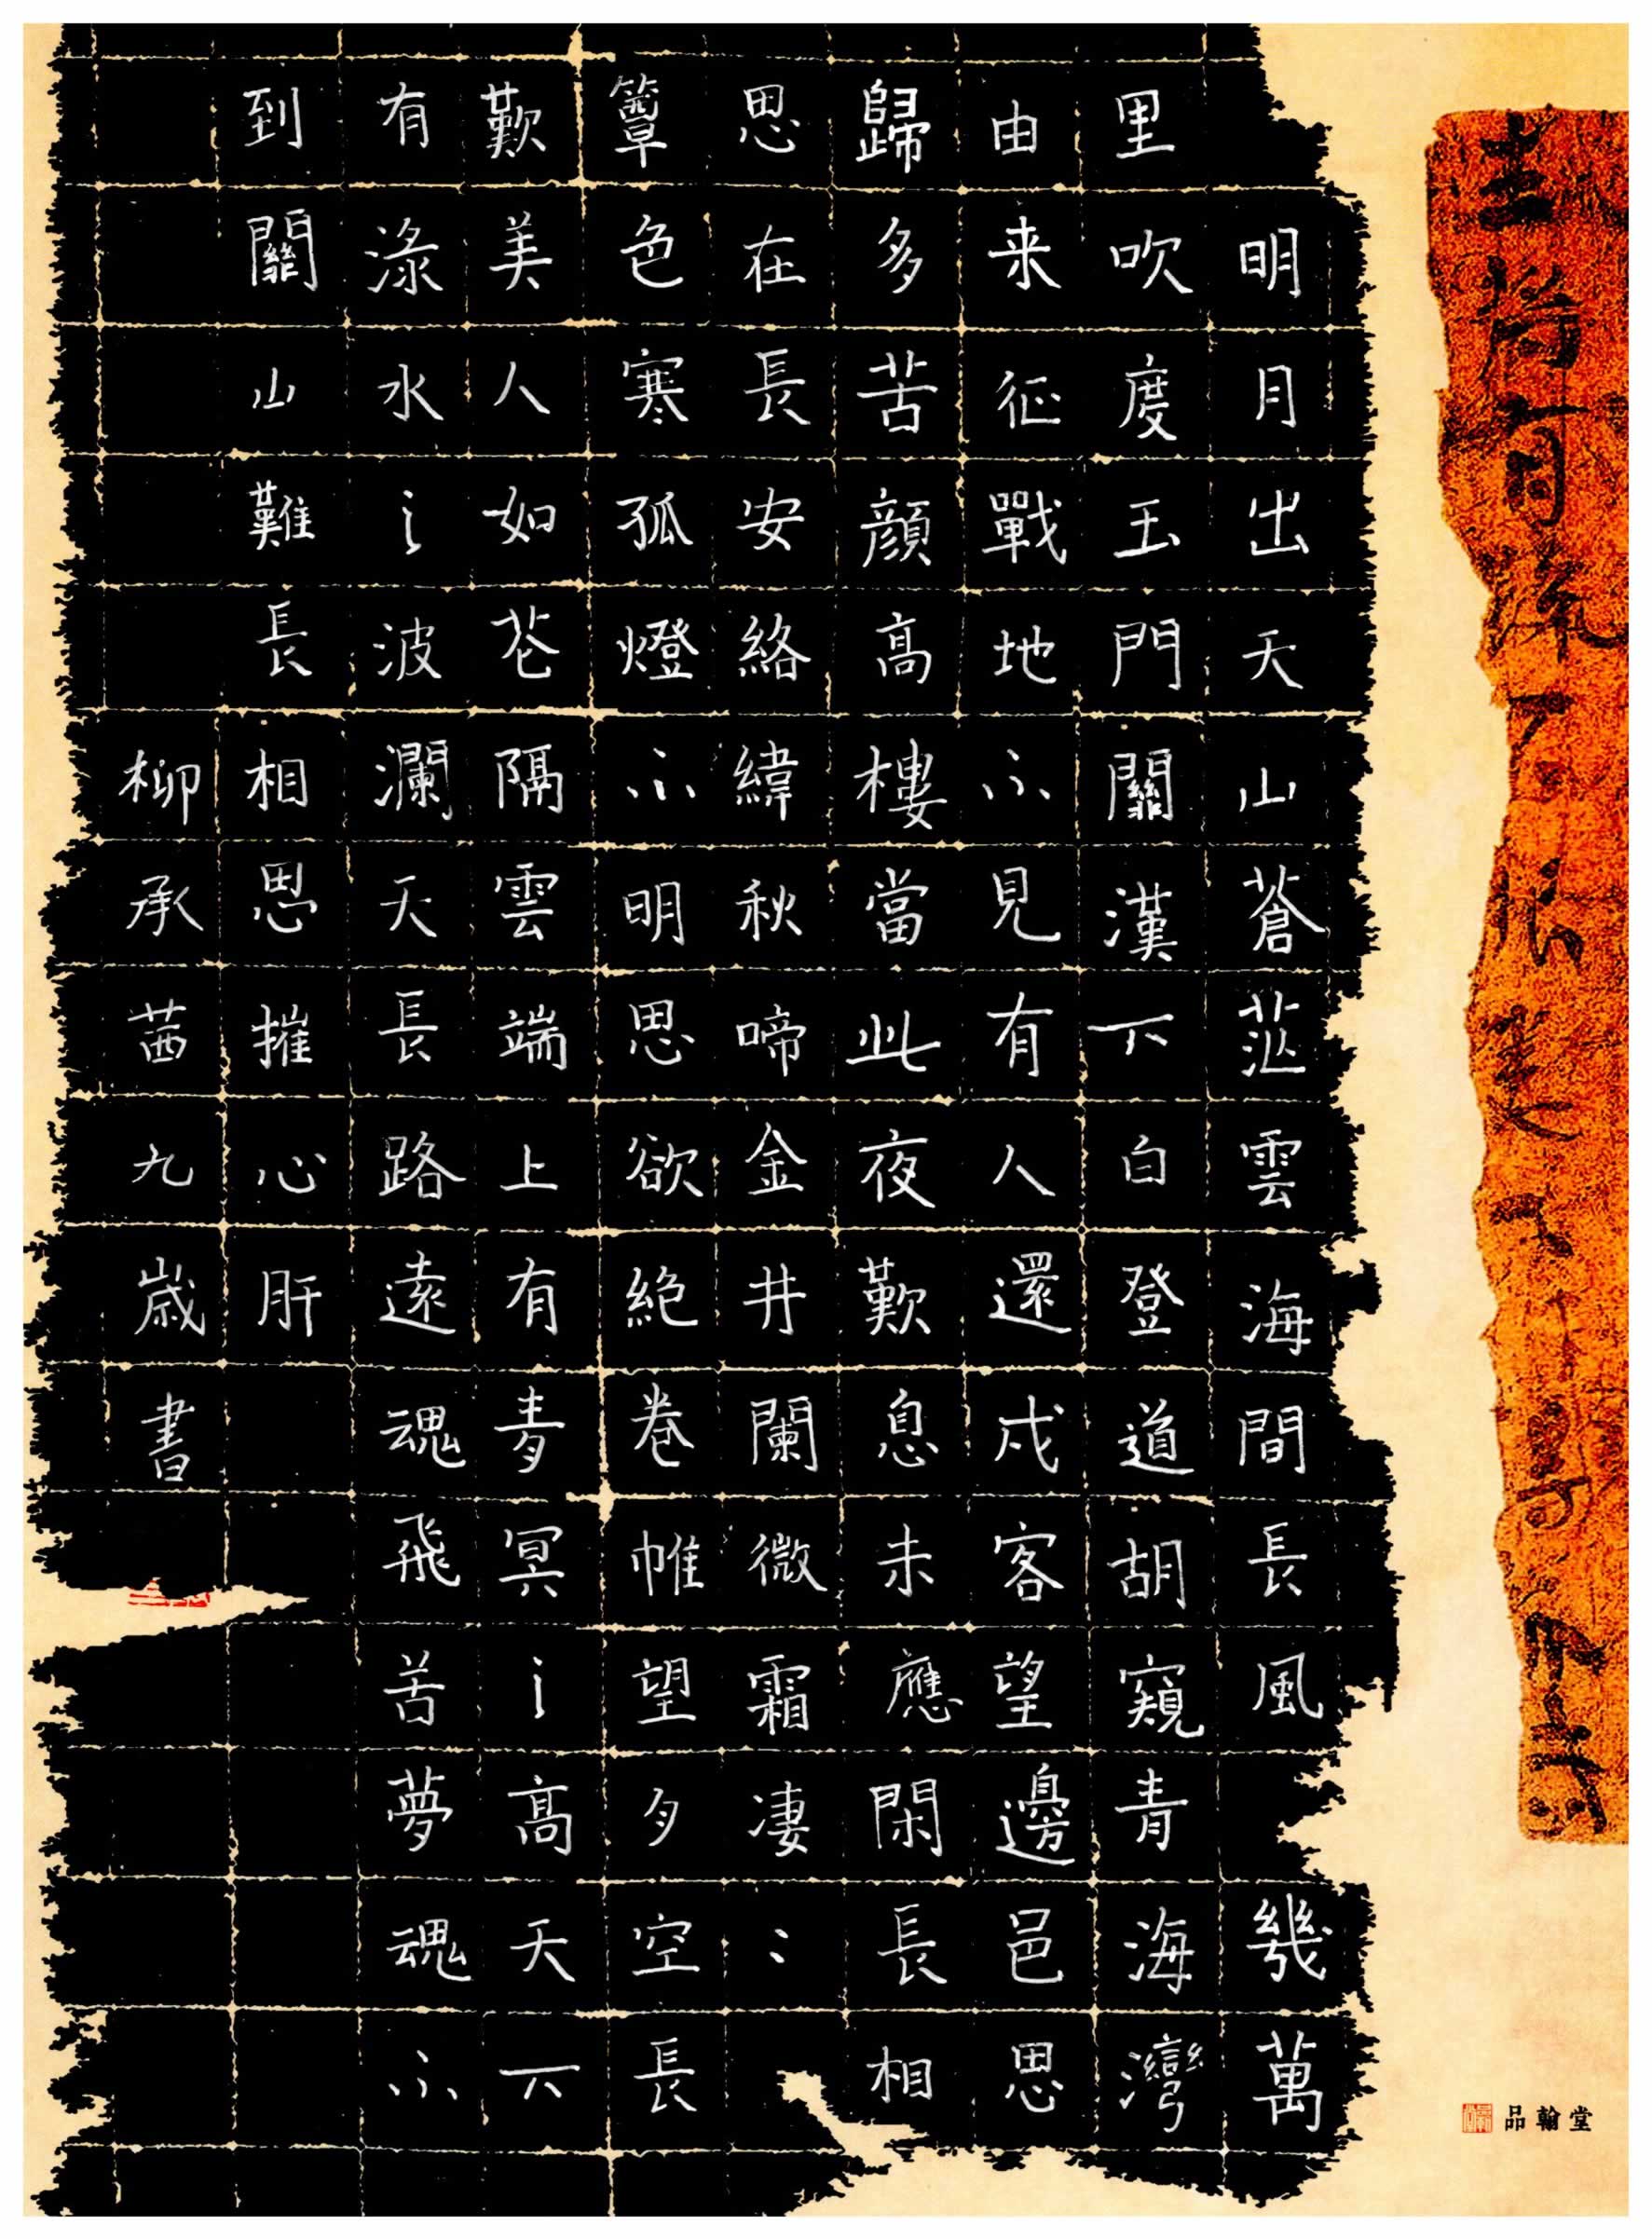 明月出天山蒼茫雲海間長風幾萬
里吹度玉門關漢下白登道胡窺青海灣
由来征戰地不見有人還戍客望邊邑思
歸多苦顔高樓當此夜歎息未應閑長相
思在長安絡緯秋啼金井闌微霜凄〻
簟色寒孤燈不明思欲絶卷帷望夕空長
歎美人如花隔雲端上有青冥之高天下
有渌水之波瀾天長路遠魂飛苦夢魂不
到關山難長相思摧心肝
柳承茜九歲書
品翰堂